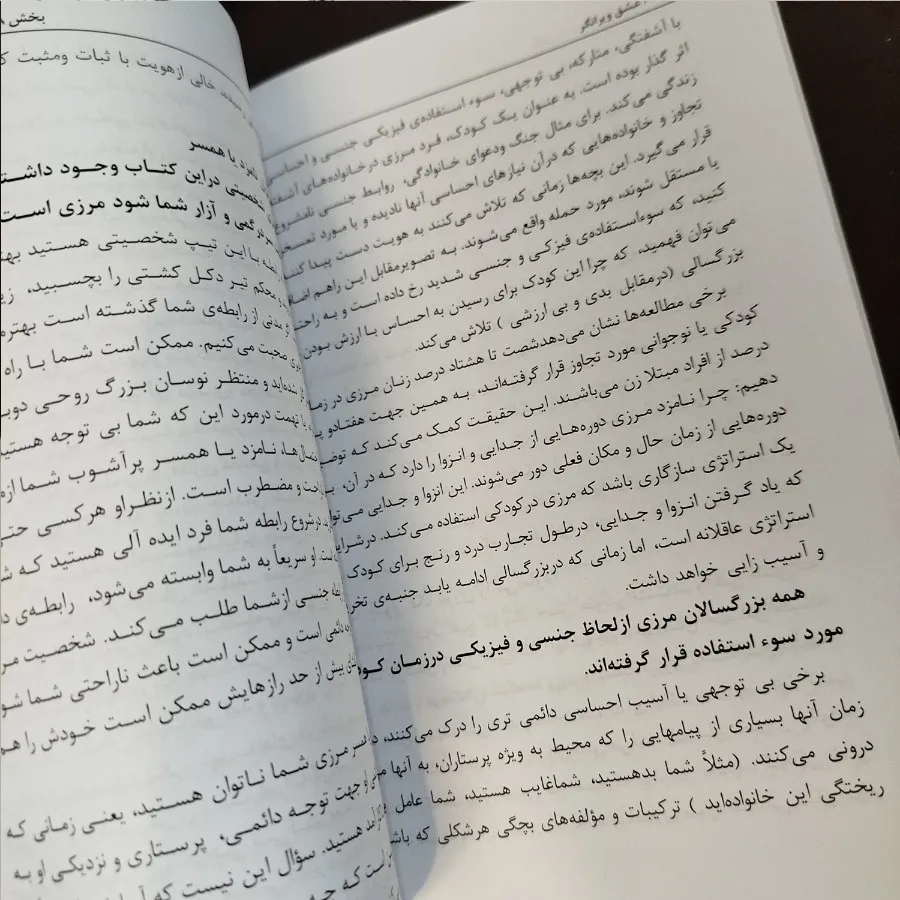 عشق ویرانگر
با آشفتگی، متارکه، بی توجهی، سوء استفاده‌ی فیزیکی جنسی و احساسی
اثر گذار بوده است. به عنوان یک کودک، فرد مرزی درخانواده‌های
زندگی می‌کند. برای مثال جنگ ودعوای خانوادگی، روابط جنسی
تجاوز و خانواده‌هایی که درآن نیازهای احساسی آنها نادیده و یا مورد
قرار می‌گیرد. این بچه‌ها زمانی که تلاش می‌کنند به هویت دست پیدا کنند
یا مستقل شوند، مورد حمله واقع می‌شوند. به تصویرمقابل این راهم
کنید، که سوءاستفاده‌ی فیزکی و جنسی شدید رخ داده است و به
می‌توان فهمید، که چرا این کودک برای رسیدن به احساس با ارزش بودن
بزرگسالی (درمقابل بدی و بی ارزشی ) تلاش می‌کند.
برخی مطالعه‌ها نشان می‌دهدشصت تا هشتاد درصد زنان مرزی در
کودکی یا نوجوانی مورد تجاوز قرار گرفته‌اند، به همین جهت هفتادو
درصد از افراد مبتلا زن می‌باشند. این حقیقت کمک می‌کند که
دهیم: چرا نامزد مرزی دوره‌هایی از جدایی و انزوا را دارد که در آن،
دوره‌هایی از زمان حال و مکان فعلی دور می‌شوند. این انزوا و جدایی
یک استراتژی سازگاری باشد که مرزی درکودکی استفاده می‌کند.
که یاد گرفتن انزوا و جدایی، درطول تجارب درد و رنج برای کودک
استراتژی عاقلانه است، اما زمانی که دربزرگسالی ادامه یابد جنبه‌ی
و آسیب زایی خواهد داشت.
همه بزرگسالان مرزی ازلحاظ جنسی و فیزیکی درزمان
مورد سوء استفاده قرار گرفته‌اند.
برخی بی توجهی یا آسیب احساسی دائمی تری را درک می‌کنند،
زمان آنها بسیاری از پیامهایی را که محیط به ویژه پرستاران، به آنها
درونی می‌کنند. (مثلاً شما بدهستید، شماغایب هستید، شما عامل
ریختگی این خانواده‌اید ) ترکیبات و مؤلفه‌های بچگی هرشکلی که
بخش
خالی ازهویت با ثبات ومثبت
نامزد یا همسر
شخصیتی دراین کتاب وجود
گمی و آزار شما شود مرزی است
با این تیپ شخصیتی هستید
محکم تیر دکل کشتی را بچسبید،
مدتی از رابطه‌ی شما گذشته است
صحبت می‌کنیم. ممکن است شما با راه
شده‌اید و منتظر نوسان بزرگ روحی
تهمت درمورد این که شما بی توجه
نامزد یا همسر پرآشوب شما
و مضطرب است. ازنظراو هرکسی
درشروع رابطه شما فرد ایده آلی هستید که
او سریعاً به شما وابسته می‌شود، رابطه‌ی
جنسی ازشما طلب می‌کند. شخصیت
دائمی است و ممکن است باعث ناراحتی شما
بیش از حد رازهایش ممکن است خودش را
مرزی شما ناتوان هستید، یعنی زمانی که
جهت توجه دائمی، پرستاری و نزدیکی او به
هستید. سؤال این نیست که
است که